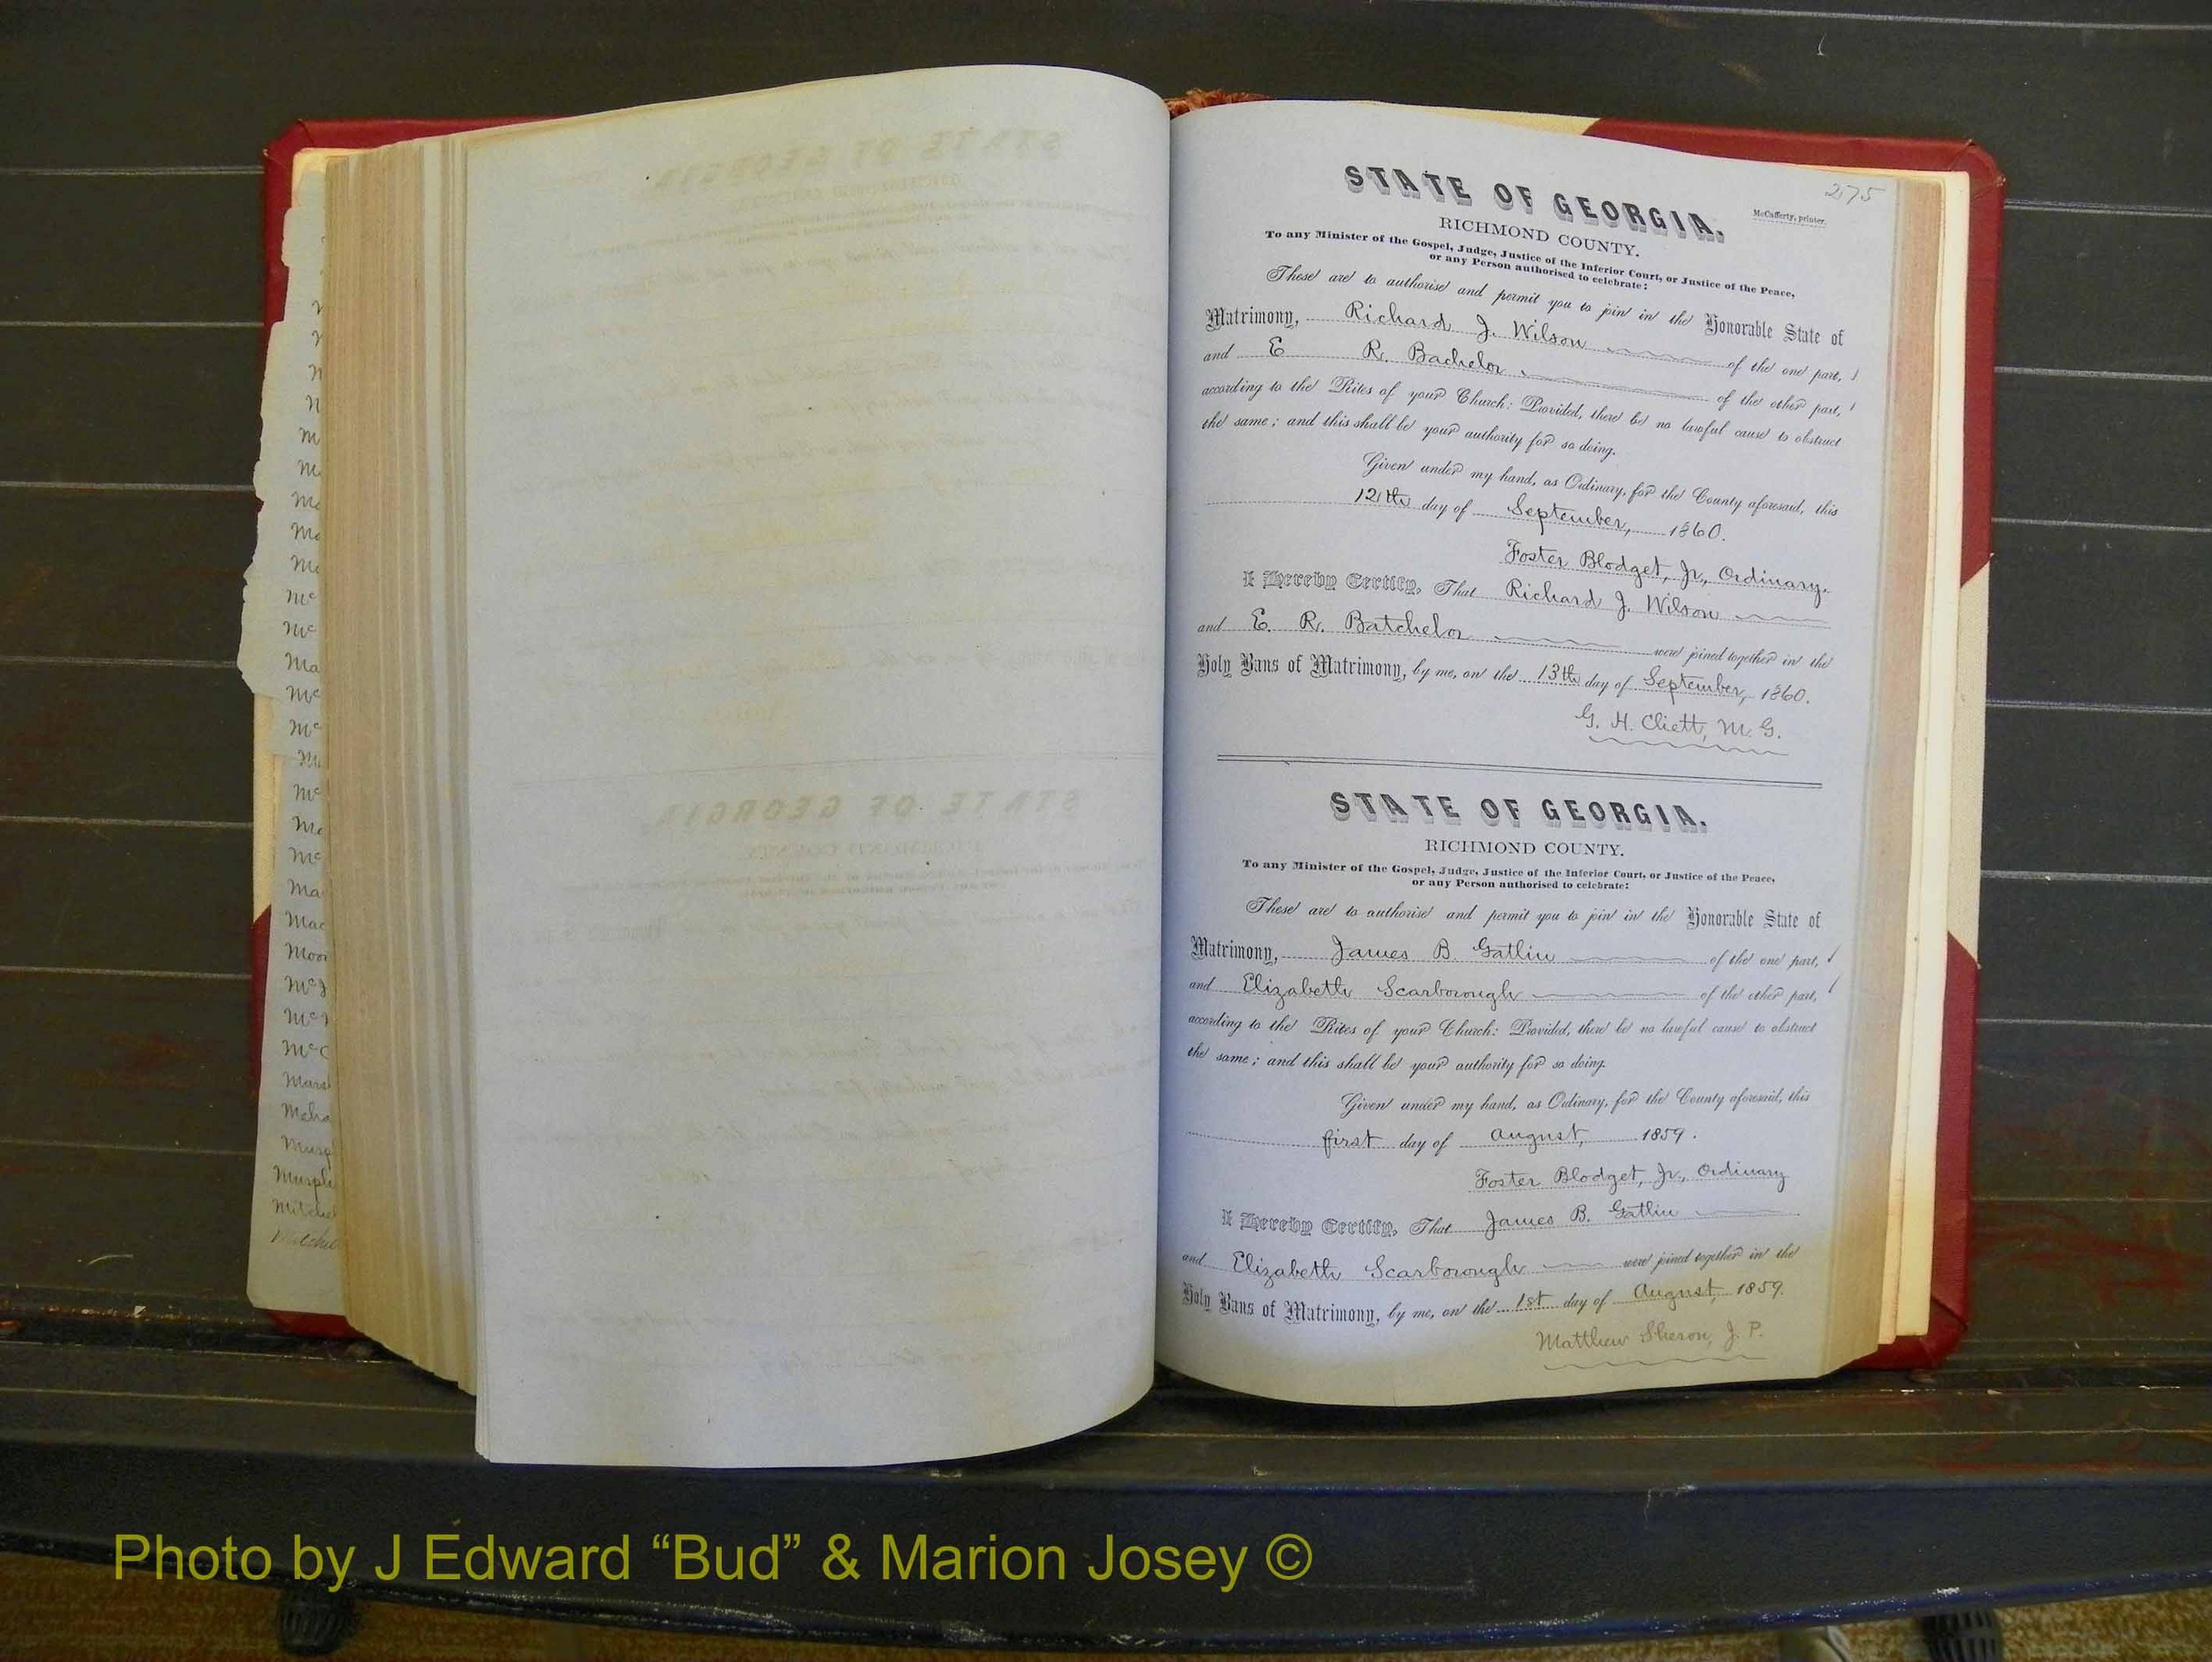 275
STATE OF GEORGIA.
McCafferty, printer.
RICHMOND COUNTY.
To any Minister of the Gospel, Judge, Justice of the Inferior Court, or Justice of the Peace,
or any Person authorised to celebrate:
These are to authorise and permit you to join in the Honorable State of
Matrimony, Richard J. Wilson of the one part,
and E R. Bachelor of the other part,
according to the Rites of your Church: Provided, there be no lawful cause to obstruct
the same; and this shall be your authority for so doing.
Given under my hand, as Ordinary, for the County aforesaid, this
12th day of September, 1860.
Foster Blodget, Jr., Ordinary.
I Hereby Certify, That Richard J. Wilson
and E. R. Batchelor were joined together in the
Holy Bans of Matrimony, by me, on the 13th day of September, 1860.
G. H. Cliett, M. G.
STATE OF GEORGIA.
RICHMOND COUNTY.
To any Minister of the Gospel, Judge, Justice of the Inferior Court, or Justice of the Peace,
or any Person authorised to celebrate:
These are to authorise and permit you to join in the Honorable State of
Matrimony, James B. Gatlin of the one part,
and Elizabeth Scarborough of the other part,
according to the Rites of your Church: Provided, there be no lawful cause to obstruct
the same; and this shall be your authority for so doing.
Given under my hand, as Ordinary, for the County aforesaid, this
first day of August, 1859.
Foster Blodget, Jr., Ordinary
I Hereby Certify, That James B. Gatlin
and Elizabeth Scarborough were joined together in the
Holy Bans of Matrimony, by me, on the 1st day of August, 1859.
Matthew Sheron, J. P.
Photo by J Edward “Bud” & Marion Josey ©